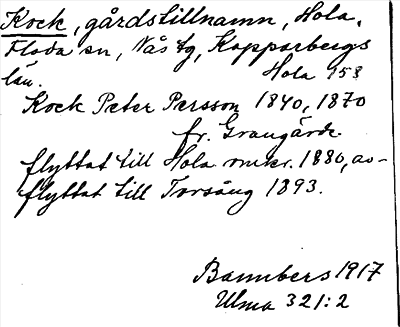 Kock, gårdstillnamn, Hola,
Floda sn, Nås tg, Kopparbergs
län. Hola 153
Kock Peter Persson 1840, 1870
fr. Grangärde.
flyttat till Hola omkr. 1880, av-
flyttat till Torsång 1893.
Bannbers 1917
Ulma 321:2